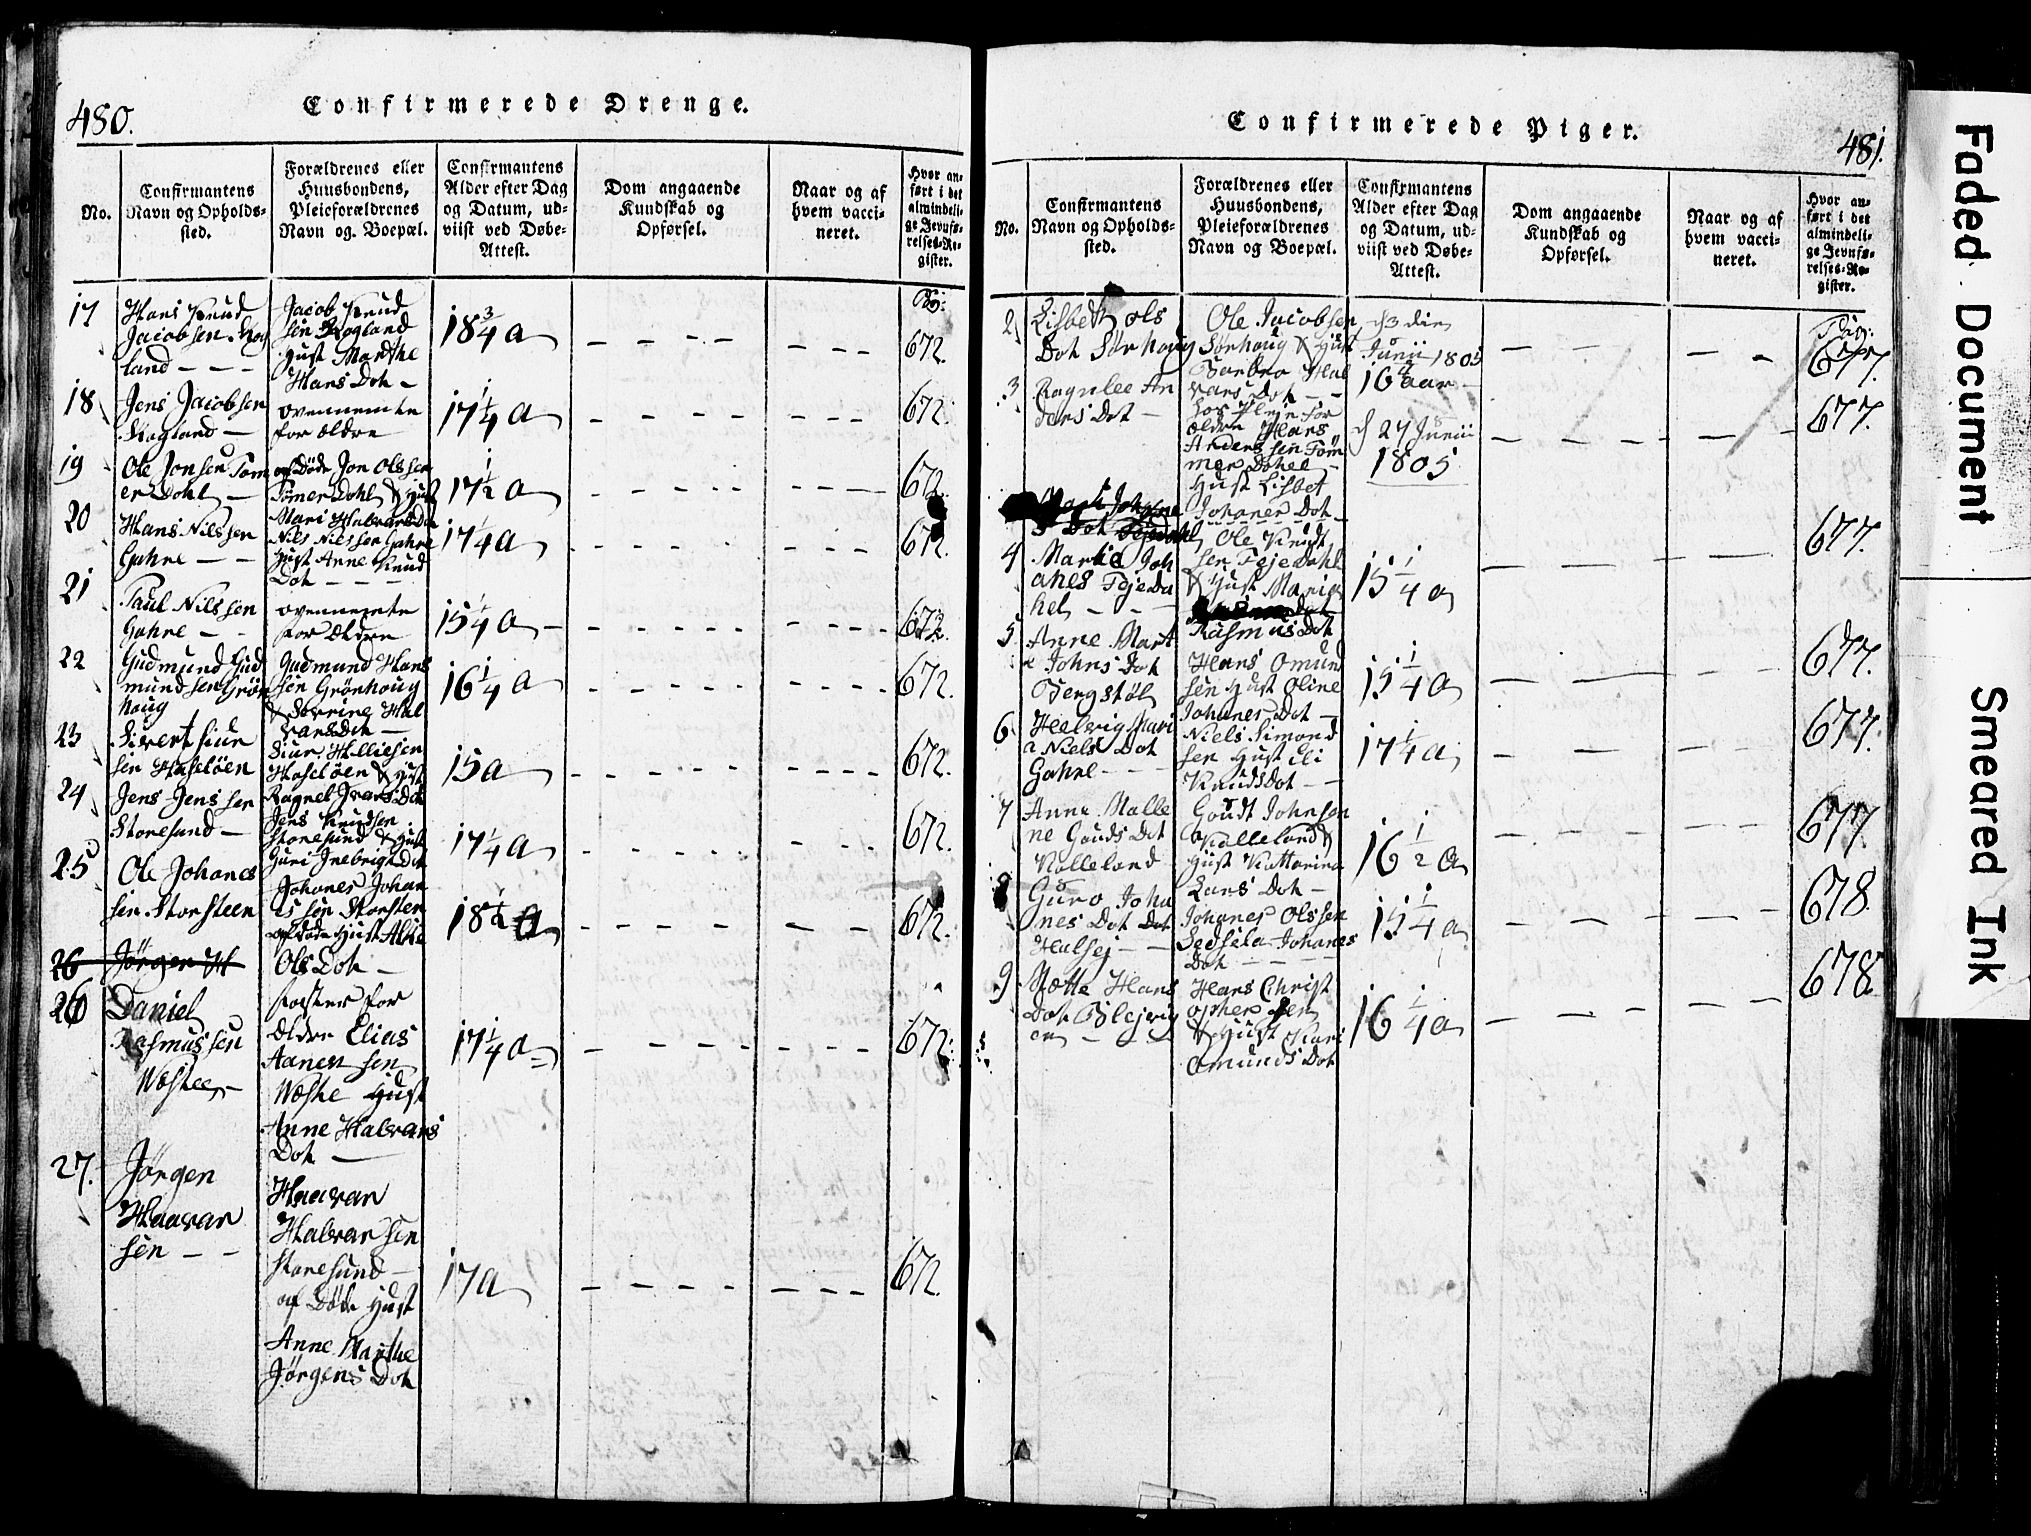 480.
Confirmerede Drenge.
No.
Confirmantens
Navn og Opholds-
sted.
Forældrenes eller
Huusbondens,
Pleieforældrenes
Navn og Boepæl.
Confirmantens
Alder efter Dag
og Datum, ud-
viist ved Døbe-
Attest.
Dom angaaende
Kundskab og
Opførsel.
Naar og af
hvem vacci-
neret.
Hvor an-
ført i det
almindeli-
ge Jevnfø-
relses-Re-
gister.
Pag:
17
Hans Knud
Jacobsen
land - - -
Jacob Knud
sen Rogland
Hust Marthe
Hans Dot -
18 3/4 a
672.
18
Jens Jacobsen
Rogland -
ovennemte
for ældre
17 1/4 a
672.
19
Ole Jonsen Tøm
er Dohl -
af Døde Jon Olssen
Tømer Dohl & Hust
Mari Halvars Dot
17 1/2 a
672.
20
Hans Nilssen
Gahre - -
Nils Nilssen Gahre
Hust Anne Knud
Dot - - -
17 1/4 a
672.
21
Paul Nilssen
Gahre - -
ovennemte
for Ældre
15 1/4 a
672.
22
Gudmund Gud
mundsen Grøn
houg
Gudmund Hans
sen Grönhoug
& Serrine Hal
vars Dot -
16 1/4 a
672.
23
Sivert Siur
sen Hasseløen
Siur
Haseløen & Hust
Ragnel Ivars Dot
15 a
672.
24
Jens Jenssen
Storesund -
Jens Knudsen
Storesund & Hust
Guri Inebrigt Dot
17 1/4 a
672.
25
Ole Johanes
sen Storsteen
Johanes Johan
es sen Storsten
af Døde Hust
Ols Dot -
18 1/2 a
672.
26 Jørgen H
26
Daniel
Rasmussen
Næshe -
foster for
Ældre Elias
Aanensen
Næshe Hust
Anne Halvars
Dot -
17 1/4 a
672.
27.
Jørgen
Haavar
sen - -
Haavar
Halvarsen
Storesund -
af Døde Hust
Anne Marthe
Jørgens Dot
17 a
672.
Confirmerede Piger.
481.
No.
Confirmantens
Navn og Opholds-
sted.
Forældrenes eller
Huusbondens,
Pleieforældrenes
Navn og Boepæl.
Confirmantens
Alder efter Dag
og Datum, ud-
viist ved Døbe-
Attest.
Dom angaaende
Kundskab og
Opførsel.
Naar og af
hvem vacci-
neret.
Hvor an-
ført i det
almindeli-
ge Jevnfø-
relses-Re-
gister.
Pag:
2
Lisbeth Ols
Dot Sørhoug
Ole Jacobsen
Sørhoug & Hust
Barbro Hal
vars Dot - -
Junii 1805
16 aar
677.
3
Ragnlee An
ders Dot -
hos Pleje for
ældre Hans
Anderssen Töm
mer Dohel -
Hust Lisbet
Johanes Dot -
d 27 Junii
1805
677.
4
Martha Joh
anes Feje Da
hel - - -
Ole Knudt
sen Feje Dahl
& Hust Maria
Rasmus Dot
15 1/4 a
677.
5
Anne Mart
e Johns Dot
Bergstøl
Hans Omund
sen Hust Oline
Johanes Dot -
15 1/4 a
677.
6
Helvig Mari
a Niels Dot
Gahre - -
Niels Simond
sen Hust Eli
Knuds Dot -
17 1/4 a
677.
7
Anne Malle
ne Gouds Dot
Nalleland
Goudt Johnson
Nalleland &
Hust Kattarina
Lars Dot -
16 1/2 a
677.
8
Guro Joha
nes Dot Dot
Halsej - -
Johanes Olssen
Sedsela Johanes
Dot - - -
15 1/4 a
678.
9
Mette Hans
Dot Blejvig
en - - -
Hans Christ
opher sen
& Hust Kari
Omunds Dot
16 1/4 a
678.
Faded Document
Smeared Ink